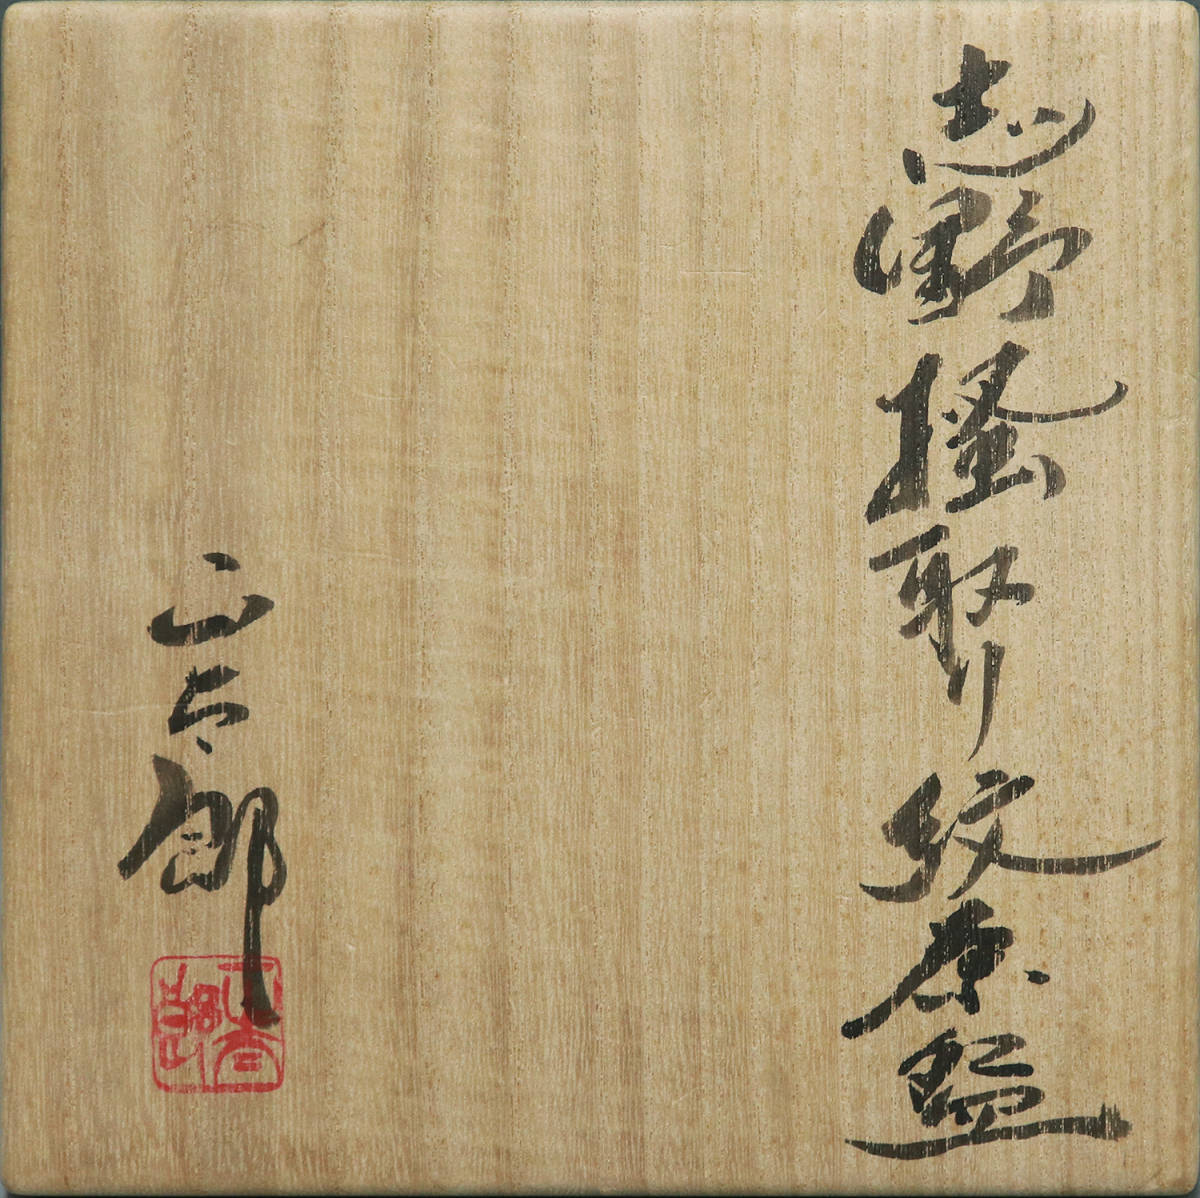 志野掻取り紋茶盌
正太郎